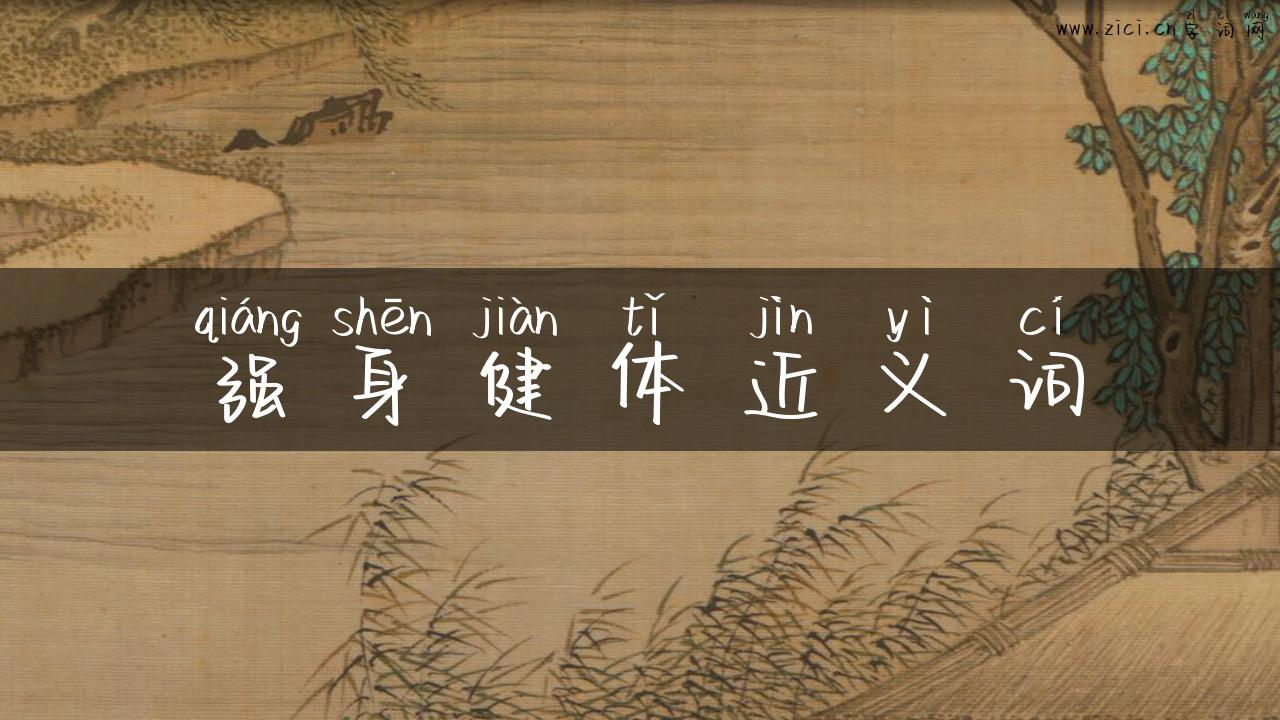 zì cí wǎng
www.zici.cn字词网
qiáng shēn jiàn tǐ jìn yì cí
强身健体近义词